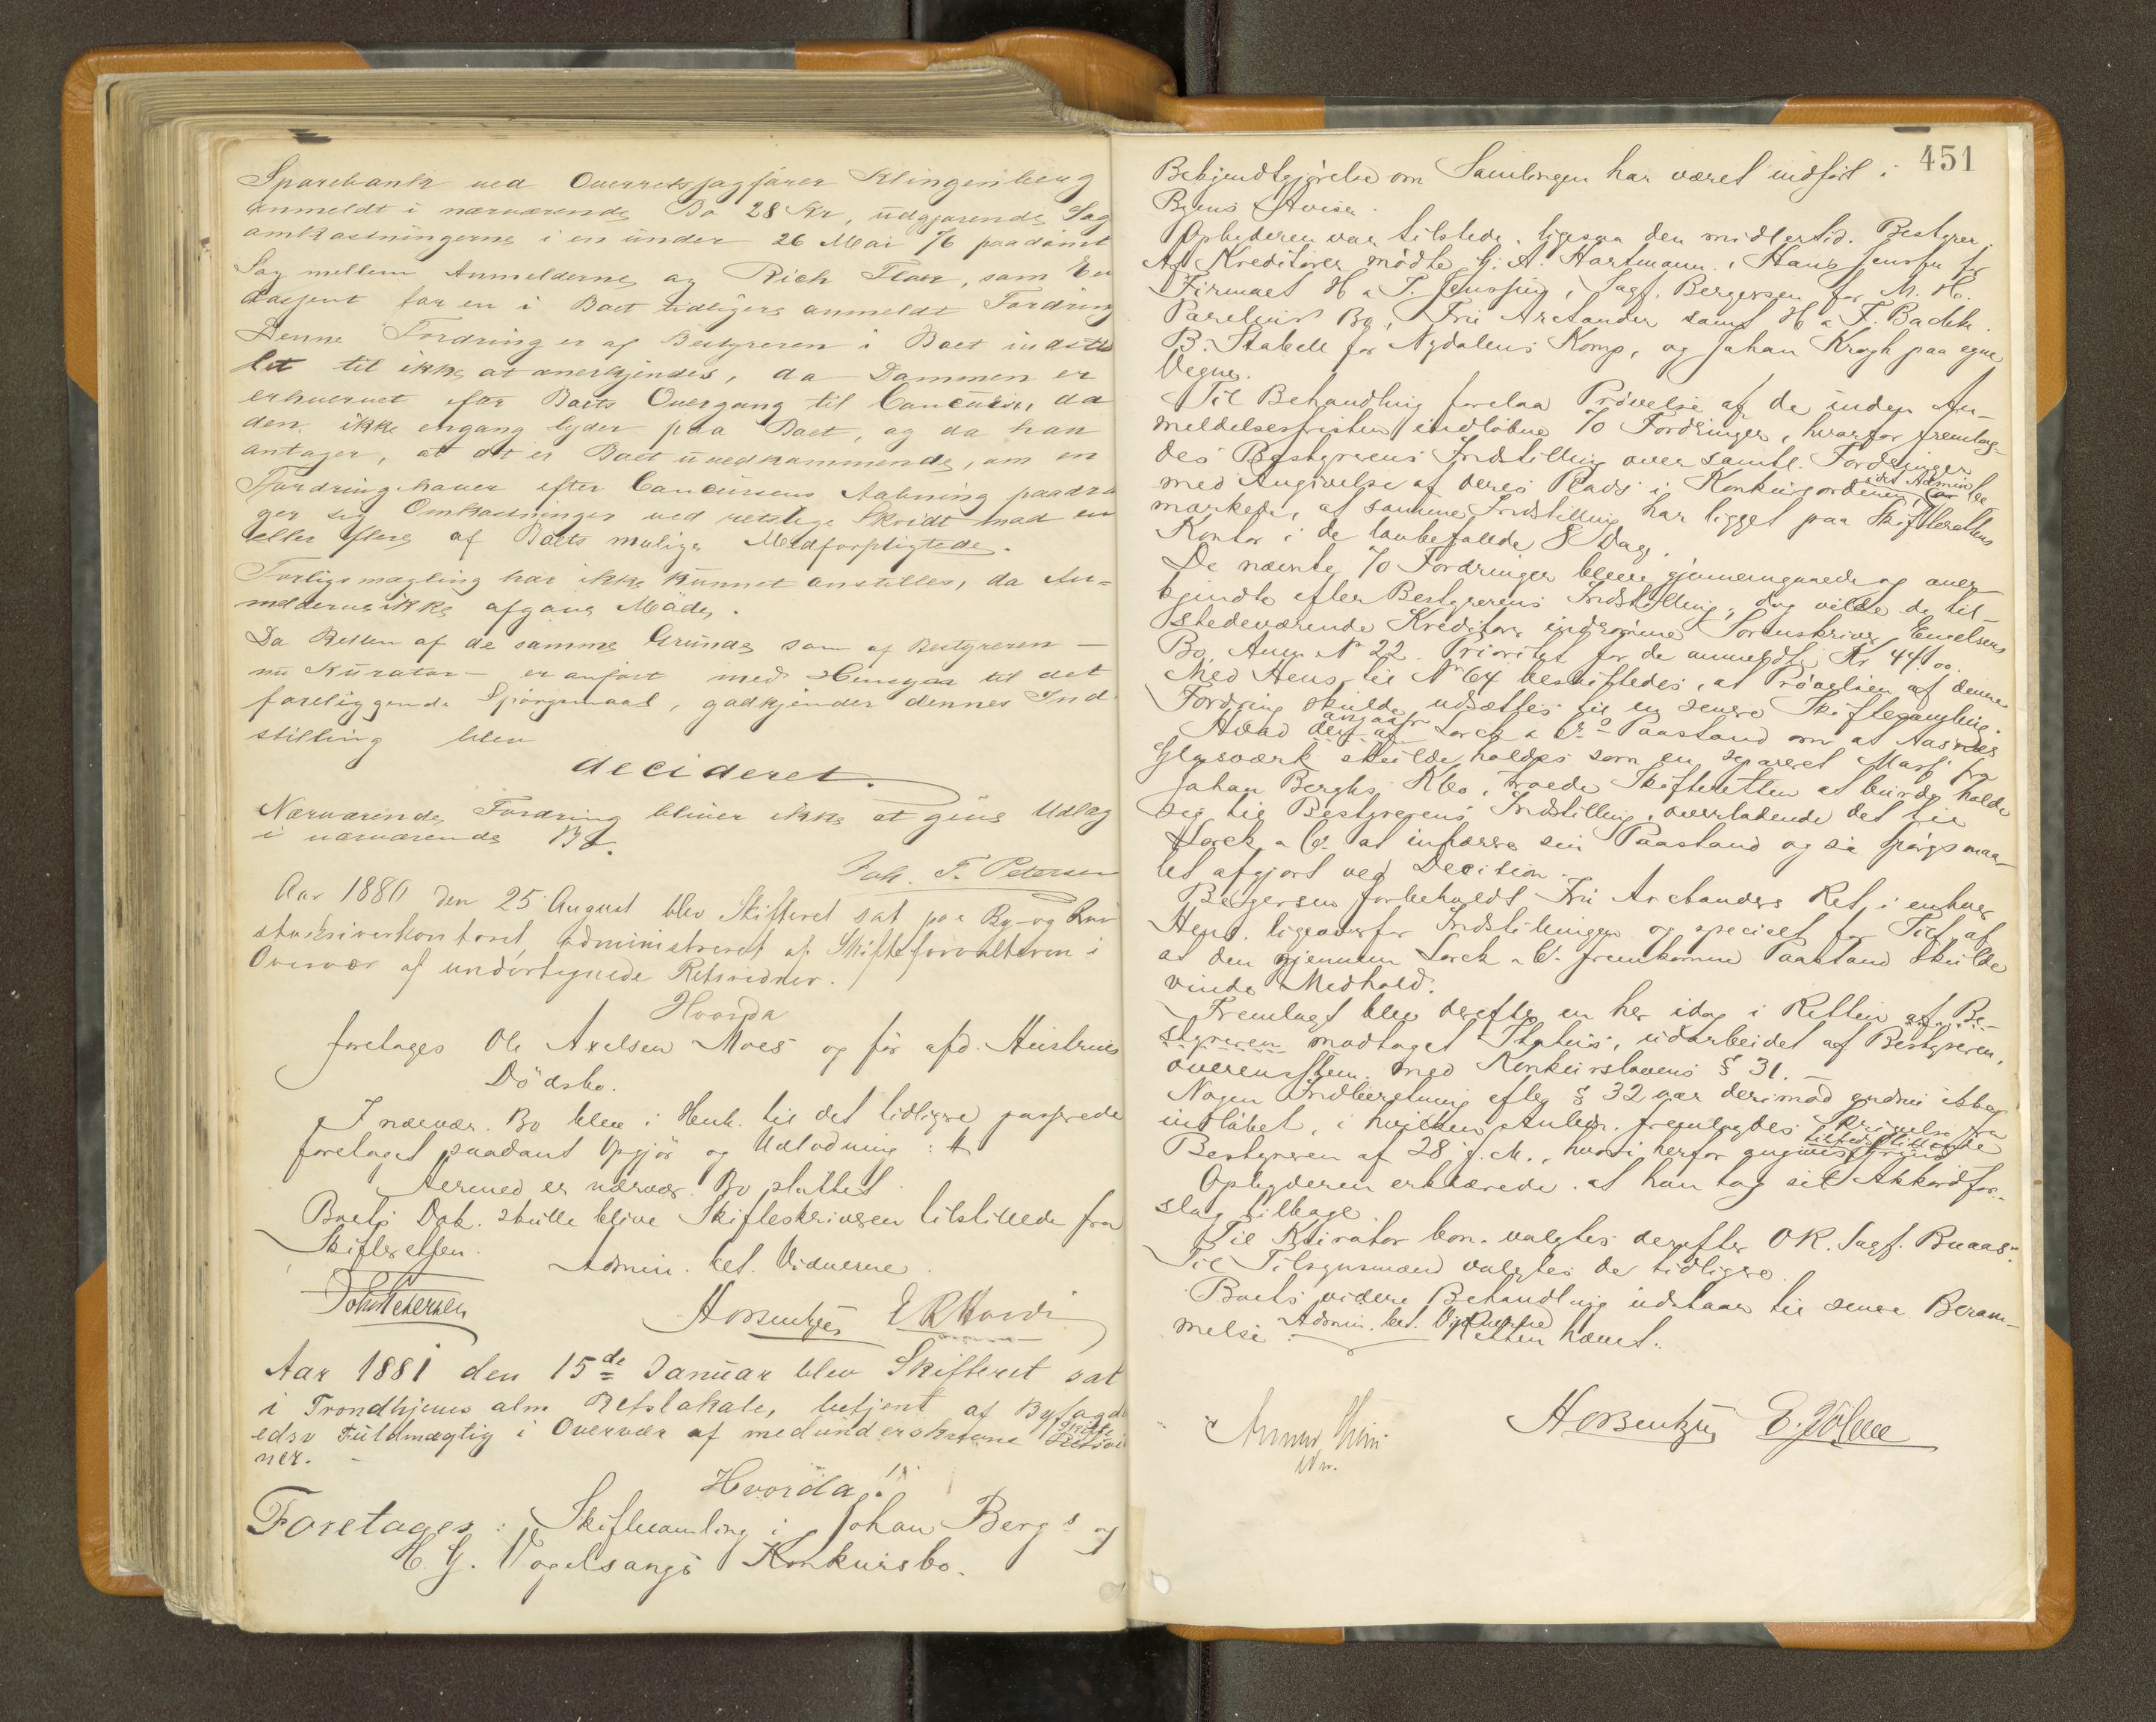 Sparebank ved Overretssagfører Klingenberg
anmeldt i nærværende Bo 28 Kr, udgjørende Sag
omkostningerne i en under 26 Mai 76 paadømt
Sag mellem Anmelderne og Rich Floer, som En
dossent for en i Boet tidligere anmeldt Fordring
Denne Fordring er af Bestyreren i Boet indstil
let til ikke at anerkjendes, da Dommen er
erhvervet efter Boets Overgang til Concurs, da
den ikke engang lyder paa Boet, og da han
antager, at det er Boet uvedkommende, om en
Fordringshaver efter Concursens Aabning paadra
ger sig Omkostninger ved retslige Skridt mod en
eller flere af Boets mulige Medforpligtede.
Forligsmægling har ikke kunnet anstilles, da An-
melderne ikke afgave Møde.
Da Retten af de samme Grunde som af Bestyreren -
nu Kurator - er anført med Hensyn til det
foreliggende Spørgsmaal, godkjender dennes Ind
stilling blev
decideret.
Nærværende Fordring bliver ikke at give Udlæg
i nærværende Bo.
Joh. F. Petersen
Aar 1880 den 25 August blev Skifteret sat paa By- og Raad
stueskriverkontoret administreret af Skifteforvalteren i
Overvær af undertegnede Retsvidner.
Hvorda
foretages Ole Axelsen Moes og før afd. Hustrues
Dödsbo.
I nærvær. Bo blev i Henh. til det tidligere passerede
foretaget saadant Opgjör og Udlodning:
Hermed er nærvær. Bo sluttet.
Boets Dok. skulle blive Skifteskriveren tilstillede fra
Skifteretten.
Admin. bet. Vidnerne.
Joh Petersen
Aar 1881 den 15de Januar blev Skifteret sat
i Trondhjems alm Retslokale, betjent af Byfogd
edsv Fuldmægtig i Overvær af medunderskrevne Retsvid
ner.
Hvorda:
Foretages: Skiftesamling i Johan Bergs og
H G. Vogelsangs Konkursbo.
451
Bekjendtgjörelse om Samlingen har været indfört i
Byens Aviser.
Opbyderen var tilstede, ligesaa den midlertid. Bestyrer.
Af Kreditorer mödte G. A. Hartmann, Hans Jenssen for
Firmaet H & T. Jenssen, Sagf. Bergersen for M. H.
Parelius Bo, Fru Arctander samt H & F. Bachke.
B. Stabell for Nydalens Komp, og Johan Krogh paa egne
Vegne.
Til Behandling forelaa Prövelse af de inden An-
meldelsesfristen indlöbne 70 Fordringer, hvorfor fremlag-
des Bestyrerens Indstilling over samtl. Fordringer
med Angivelse af deres Plads i Konkursordenen, idet Admin be
mærkede, at samme Indstilling har ligget paa Skifterettens
Kontor i de lovbefalede 8 Dage.
De nævnte 70 Fordringer bleve gjennemgaaede og aner-
kjendte efter Bestyrerens Indstilling, dog vilde de til-
stedeværende Kreditorer indrömme Sorenskriver Engelsens
Bo, Anm No 22. Prioritet for de anmeldte Kr 44.00.
Med Hens. til No 64 besluttedes, at Prövelsen af denne
Fordring skulde udsættes til en senere Skiftesamling.
Hvad angaar Lorck & Co Paastand om at Aasnes
Glasværk skulde holdes som en separat Masse fra
Johan Bergs Kbo, troede Skifteretten at burde holde
sig til Bestyrerens Indstilling, overladende det til
Lorck & Co at inhærere sin Paastand og faa spörgsmaa-
let afgjort ved Decision.
Bergersen forbeholdt Fru Arctanders Ret i enhver
Hens. ligeoverfor Indstillingen og specielt for Tilf. af
at den gjennem Lorck & Co fremkomne Paastand skulde
vinde Medhold.
Fremlagt blev derefter en her idag i Retten af Be-
styreren modtaget Status, udarbeidet af Bestyreren,
overensstem. med Konkurslovens § 31. -
Nogen Indberetning efter § 32 var derimod endnu ikke
indlöbet, i hvilken Anledn. fremlagdes Skrivelse fra
Bestyreren af 28 f. M., hvori herfor angives
Opbyderen erklærede, at han tog sit Akkordfor-
slag tilbage.
Til Kurator bon. valgtes derefter OR. Sagf. Buaas.
Til Tilsynsmænd valgtes de tidligere.
Boets videre Behandling udstaar til senere Beram-
melse.
Admin. bet. Vidnerne
Retten hævet.